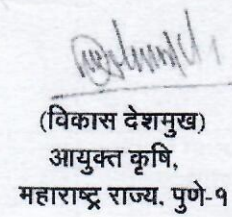 (विकास देशमुख)
आयुक्त कृषि,
महाराष्ट्र राज्य, पुणे-१